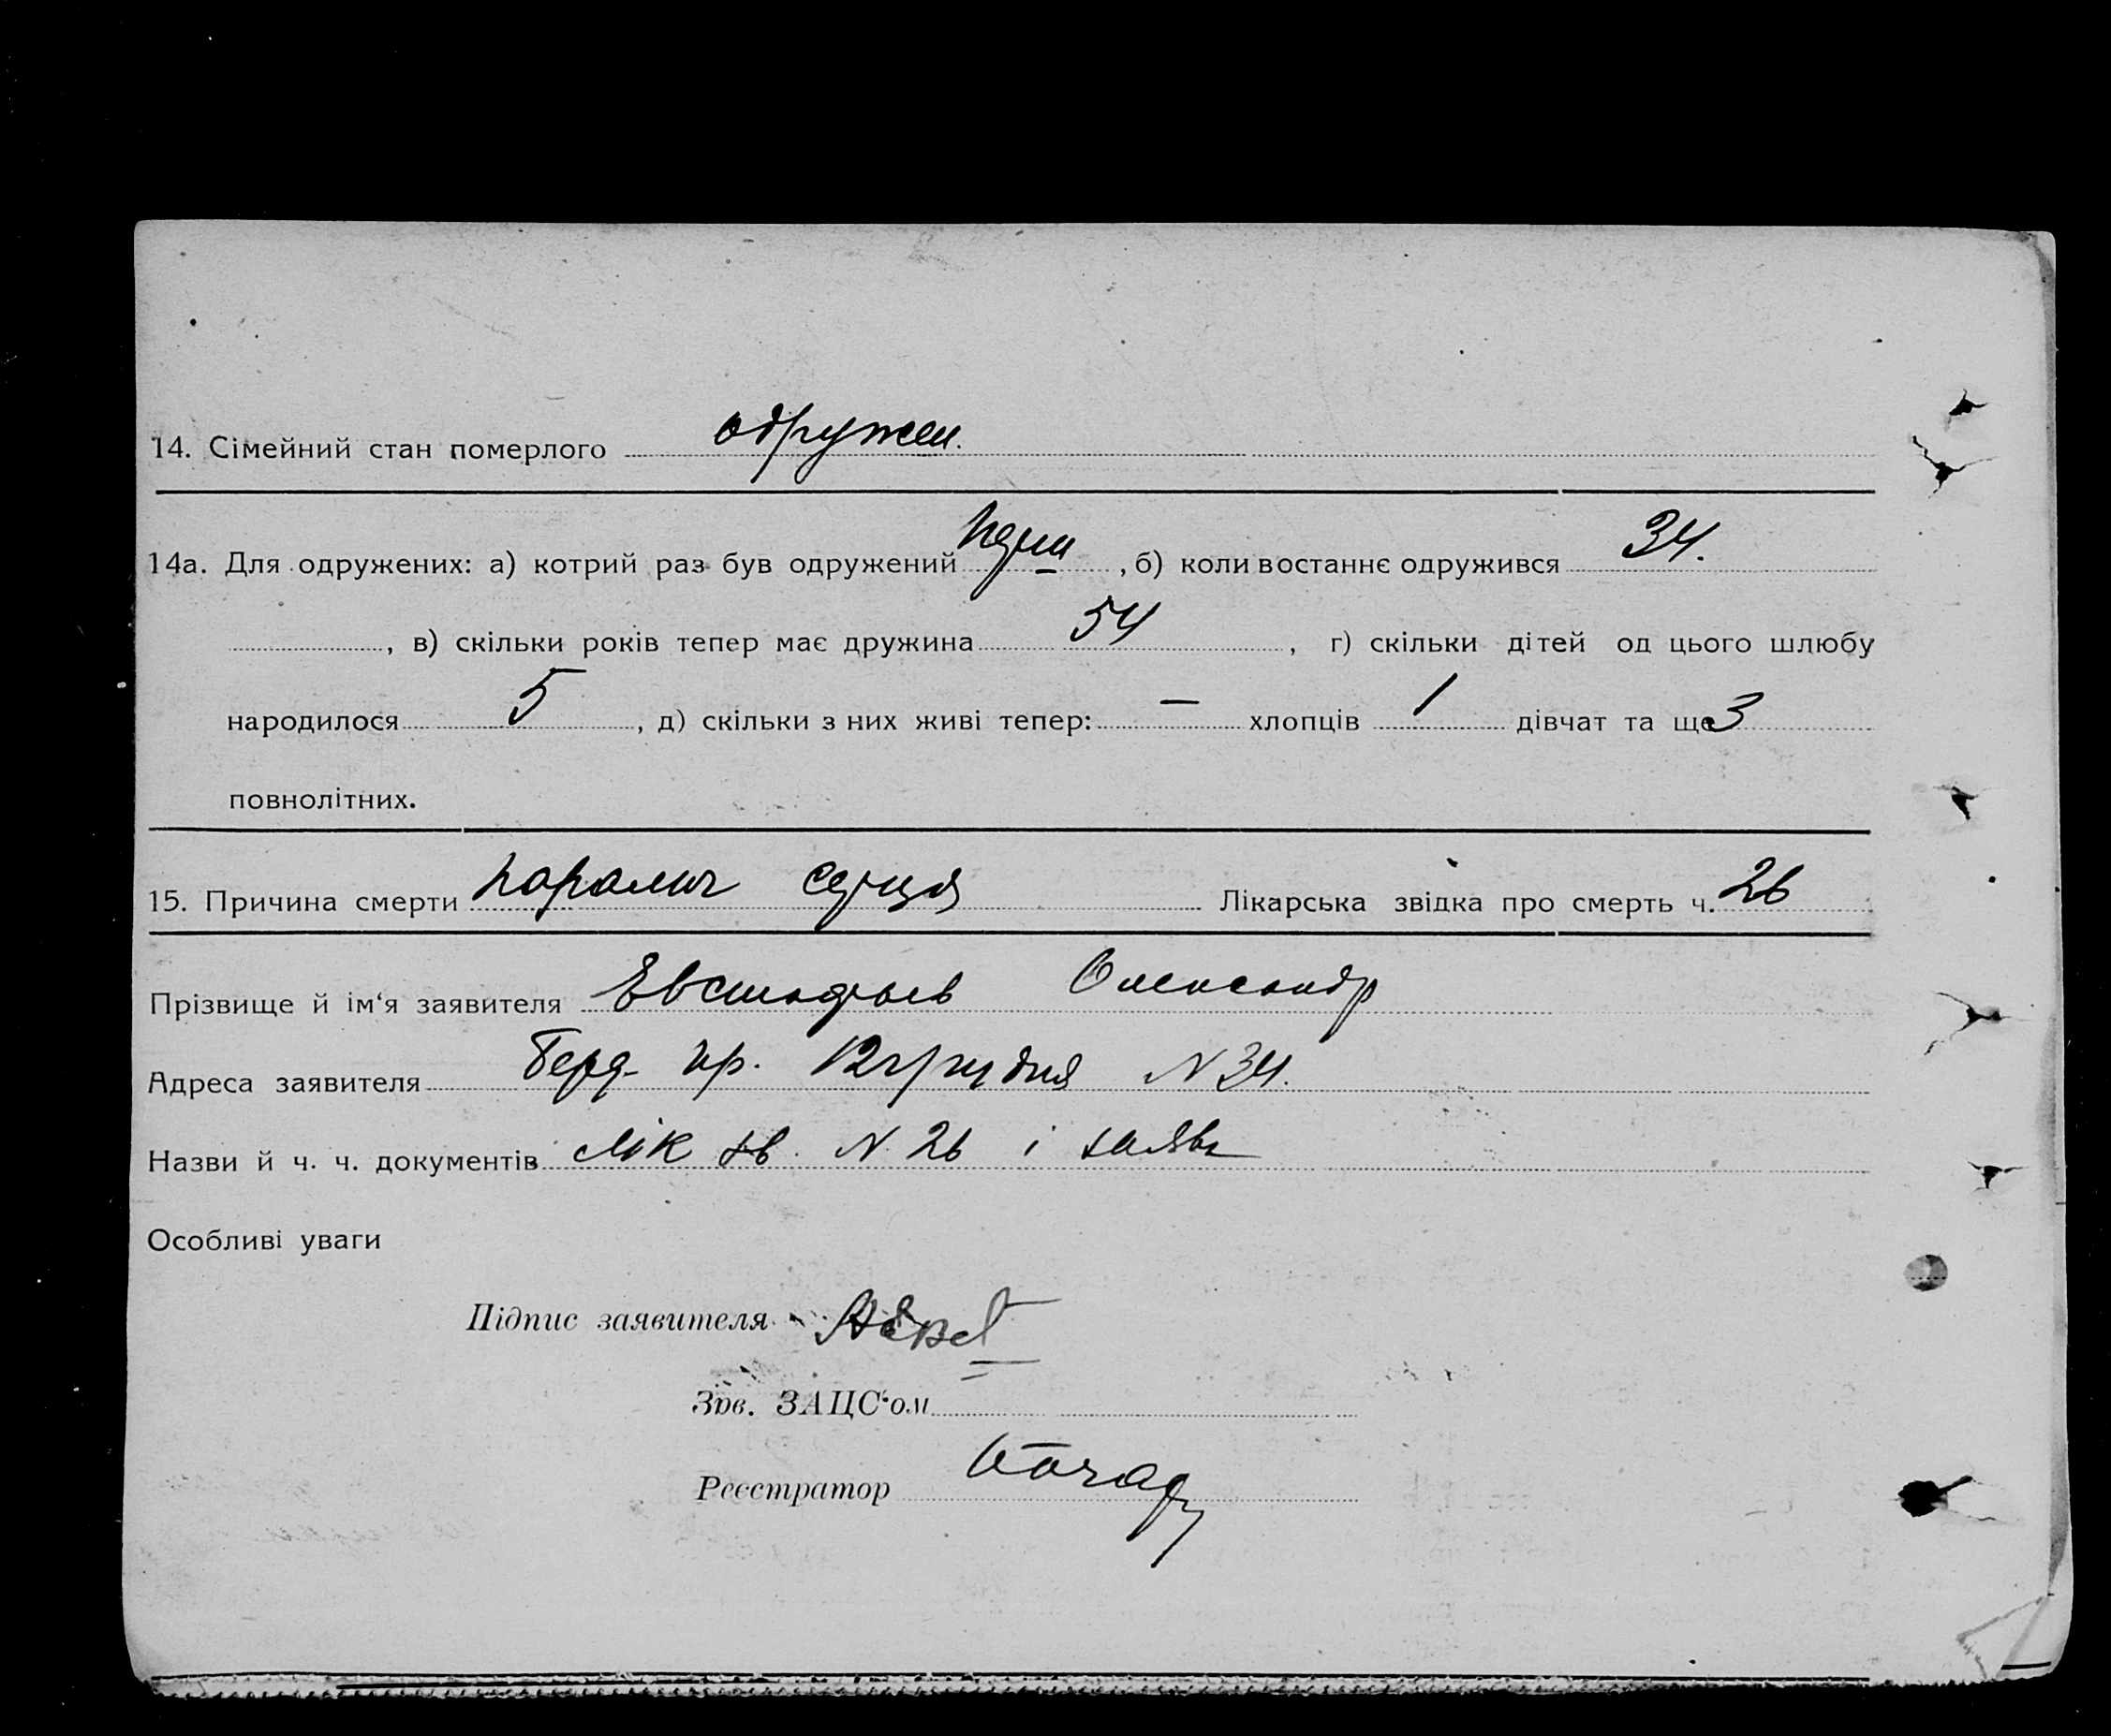 14. Сімейний стан померлого одружен.
14а. Для одружених: а) котрий раз був одружений , б) коли востаннє одружився 34.
, в) скільки років тепер має дружина 54 , г) скільки дітей од цього шлюбу
народилося 5 , д) скільки з них живі тепер: — хлопців 1 дівчат та ще 3
повнолітних.
15. Причина смерти параліч серця Лікарська звідка про смерть ч. 26
Прізвище й ім‘я заявителя Евстафьев Олександр
Адреса заявителя Берд. пр. 12 грудня N 34.
Назви й ч. ч. документів лік зв. N 26 і заява
Особливі уваги
Підпис заявителя
Зав. ЗАЦС‘ом
Реєстратор